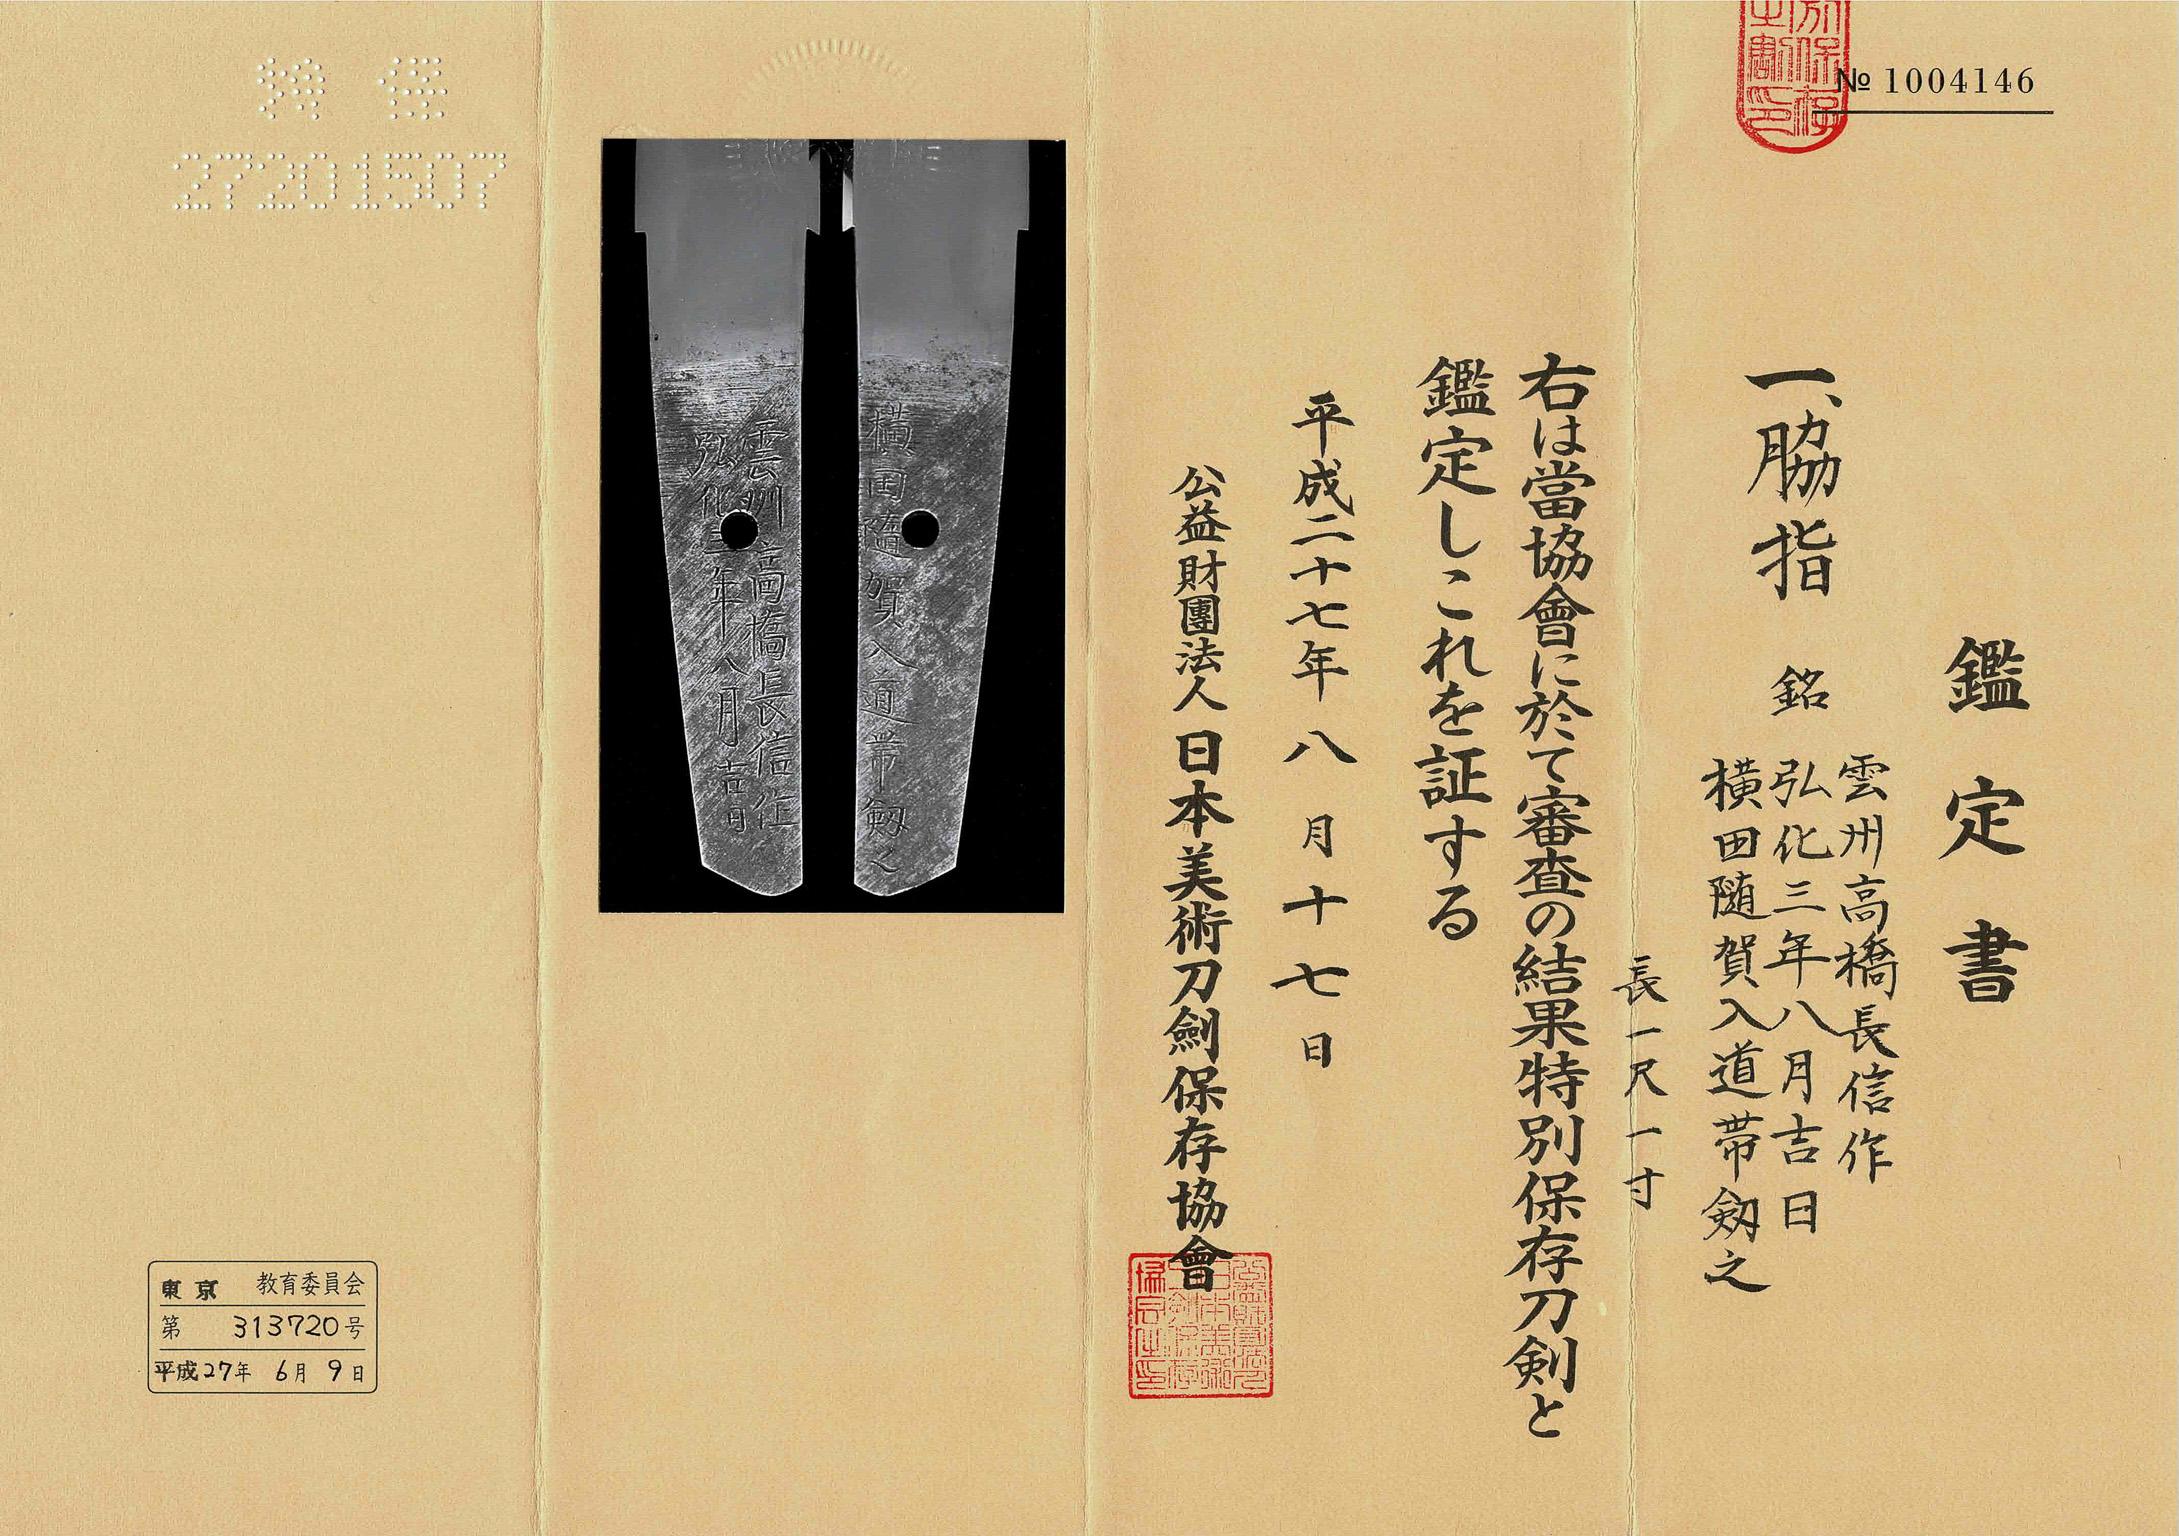 № 1004146
鑑定書
一、脇指 銘
雲州高橋長信作
弘化三年八月吉日
横田随賀入道帯剱之
長一尺一寸
右は當協會に於て審査の結果特別保存刀剣と
鑑定しこれを証する
平成二十七年八月十七日
公益財團法人日本美術刀劍保存協會
横田隨賀入道帯剱之
雲州高橋長信作
弘化三年八月吉日
特保
27201507
東京教育委員会
第 313720号
平成27年 6月 9日